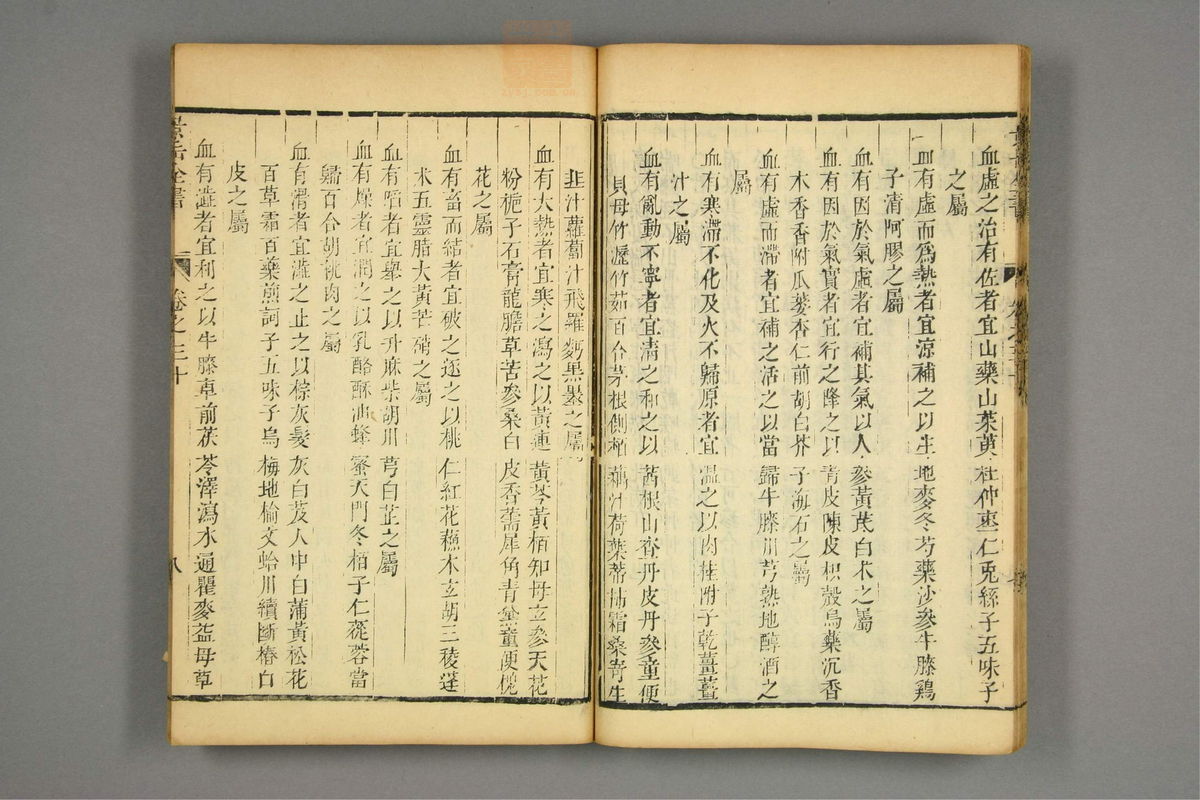 血虛之治有佐者宜山藥山茱萸杜仲棗仁兎絲子五味子
之屬
血有虛而爲熱者宜涼補之以生地麥冬芍藥沙參牛膝鷄
子清阿膠之屬
血有因於氣虛者宜補其氣以人參黃芪白术之屬
血有因於氣實者宜行之降之以青皮陳皮枳殼烏藥沉香
木香香附瓜蔞杏仁前胡白芥子海石之屬
血有虛而滯者宜補之活之以當歸牛膝川芎熟地醇酒之
屬
血有寒滯不化及火不歸原者宜溫之以肉桂附子乾薑薑
汁之屬
血有亂動不寧者宜清之和之以茜根山查丹皮丹參童便
貝母竹瀝竹茹百合茅根側栢藕汁荷葉蒂柿霜桑寄生
韭汁蘿蔔汁飛羅麪黑墨之屬
血有大熱者宜寒之瀉之以黃連黃芩黃栢知母玄參天花
粉梔子石膏龍膽草苦參桑白皮香薷犀角青黛童便槐
花之屬
血有畜而結者宜破之逐之以桃仁紅花蘇木玄胡三稜蓬
术五靈脂大黃芒硝之屬
血有陷者宜舉之以升麻柴胡川芎白芷之屬
血有燥者宜潤之以乳酪酥油蜂蜜天門冬栢子仁蓯蓉當
歸百合胡桃肉之屬
血有滑者宜濇之止之以棕灰髮灰白芨人中白蒲黃松花
百草霜百藥煎訶子五味子烏梅地榆文蛤川續斷椿白
皮之屬
血有澁者宜利之以牛膝車前茯苓澤瀉木通瞿麥益母草
景岳全書
卷之三十
八